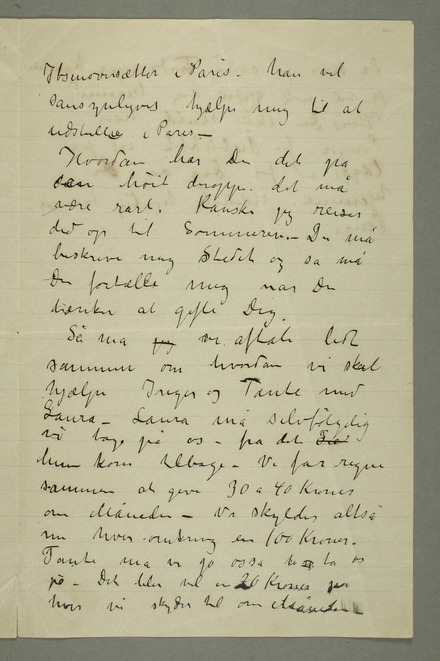 Ibsenoversætter i Paris. han vil
sansynligvis hjælpe mig til at
udstille i Paris –
Hvordan har Du det på
høit deroppe. det må
være rart. Kanske jeg reiser
did op til Sommeren – Du må
beskrive mig Stedet og så må
Du fortælle mig når Du
tænker at gifte Dig.
Så må vi aftale lidt
sammen om hvordan vi skal
hjælpe Inger og Tante med
Laura – Laura må selvfølgelig
vi tage på os – fra det
hun kom tilbage – Vi får regne
sammen at give 30 a 40 Kroner
om Måneden – Vi skylder altså
nu hver omkring en 100 Kroner.
Tante må vi jo også ta os
på – Det blir vel en 20 Kroner
hver vi skyder til om Måneden